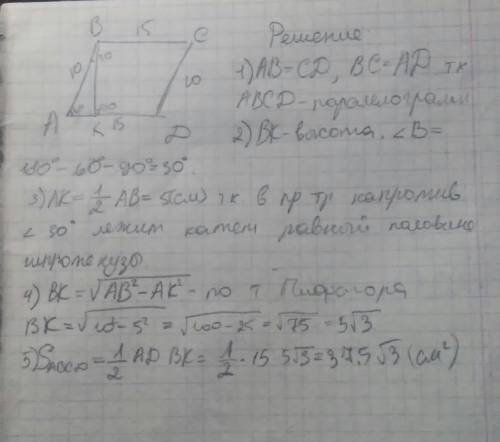 B 15 C
Решение
1) AB=CD, BC=AD тк
10
30
10
ABCD-паралелограмм
A K 15 D
2) BK-высота. ∠B=
180°-60°-90°=30°.
3) AK=1/2 AB=5(см) тк в пр тр напротив
∠30° лежит катет равный половине
гипотенузы
4) BK=√AB²-AK² - по т Пифагора
BK=√10²-5²=√100-25=√75=5√3
=1/2 AD BK=1/2·15 5√3=37,5√3 (см²)